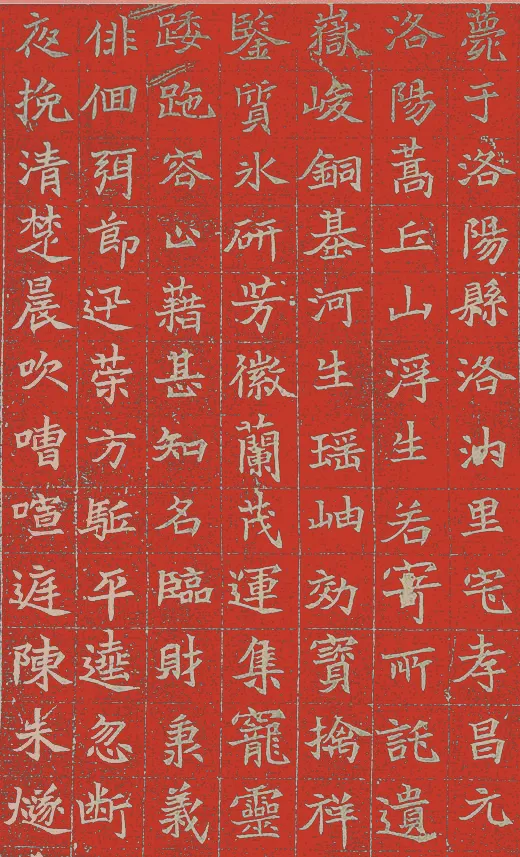 薨于洛陽縣洛汭里宅孝昌元
洛陽蒿丘山浮生若寄所託遺
嶽峻銅基河生瑶岫効寳擒祥
鑒質氷研芳徽蘭茂運集寵靈
踒跎容止藉甚知名臨財秉義
俳佪弭節迅荣方駈平逵忽断
夜挽清楚晨吹嘈喧遅陳朱燧